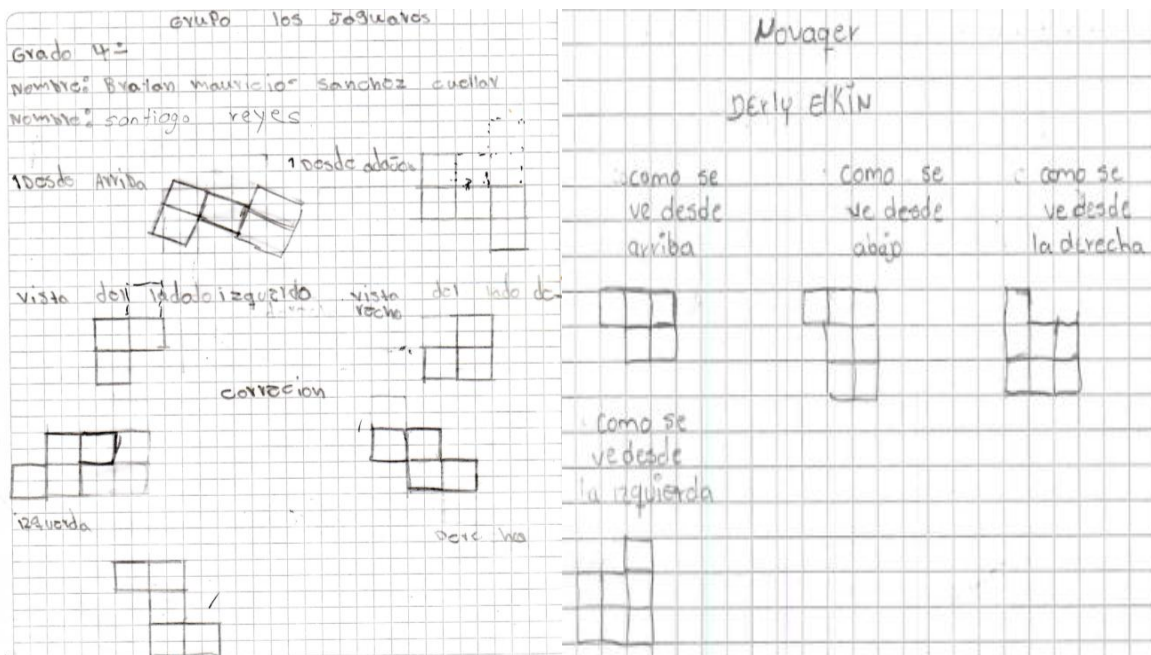 Grupo los Jaguares
Grado 4º
Nombre: Braian mauricio sanchez cuellar
Nombre: santiago reyes
1 Desde Arriba
1 Desde
vista del izquerdo
vista del lado de-
recho
correcion
izquerda
Derecha
Movager
DErly ElKiN
como se
ve desde
arriba
como se
ve desde
abajo
como se
ve desde
la derecha
como se
ve desde
la izquierda